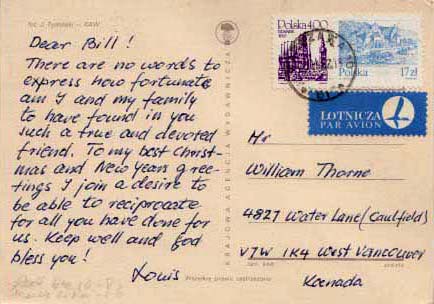 fot. J. Tymiński - KAW
Dear Bill!
There are no words to
express how fortunate
am I and my family
to have found in you
such a true and devoted
friend. To my best Christ-
mas and New Years gree-
tings I join a desire to
be able to reciprocate
for all you have done for
us. Keep well and God
bless you!
Louis
KRAJOWA AGENCJA WYDAWNICZA
Polska 4.00
Polska 17zł
LOTNICZA
PAR AVION
Mr
William Thorne
4827 Water Lane (Caulfield)
V7W 1K4 West Vancouver
Kanada
Wszelkie prawa zastrzeżone